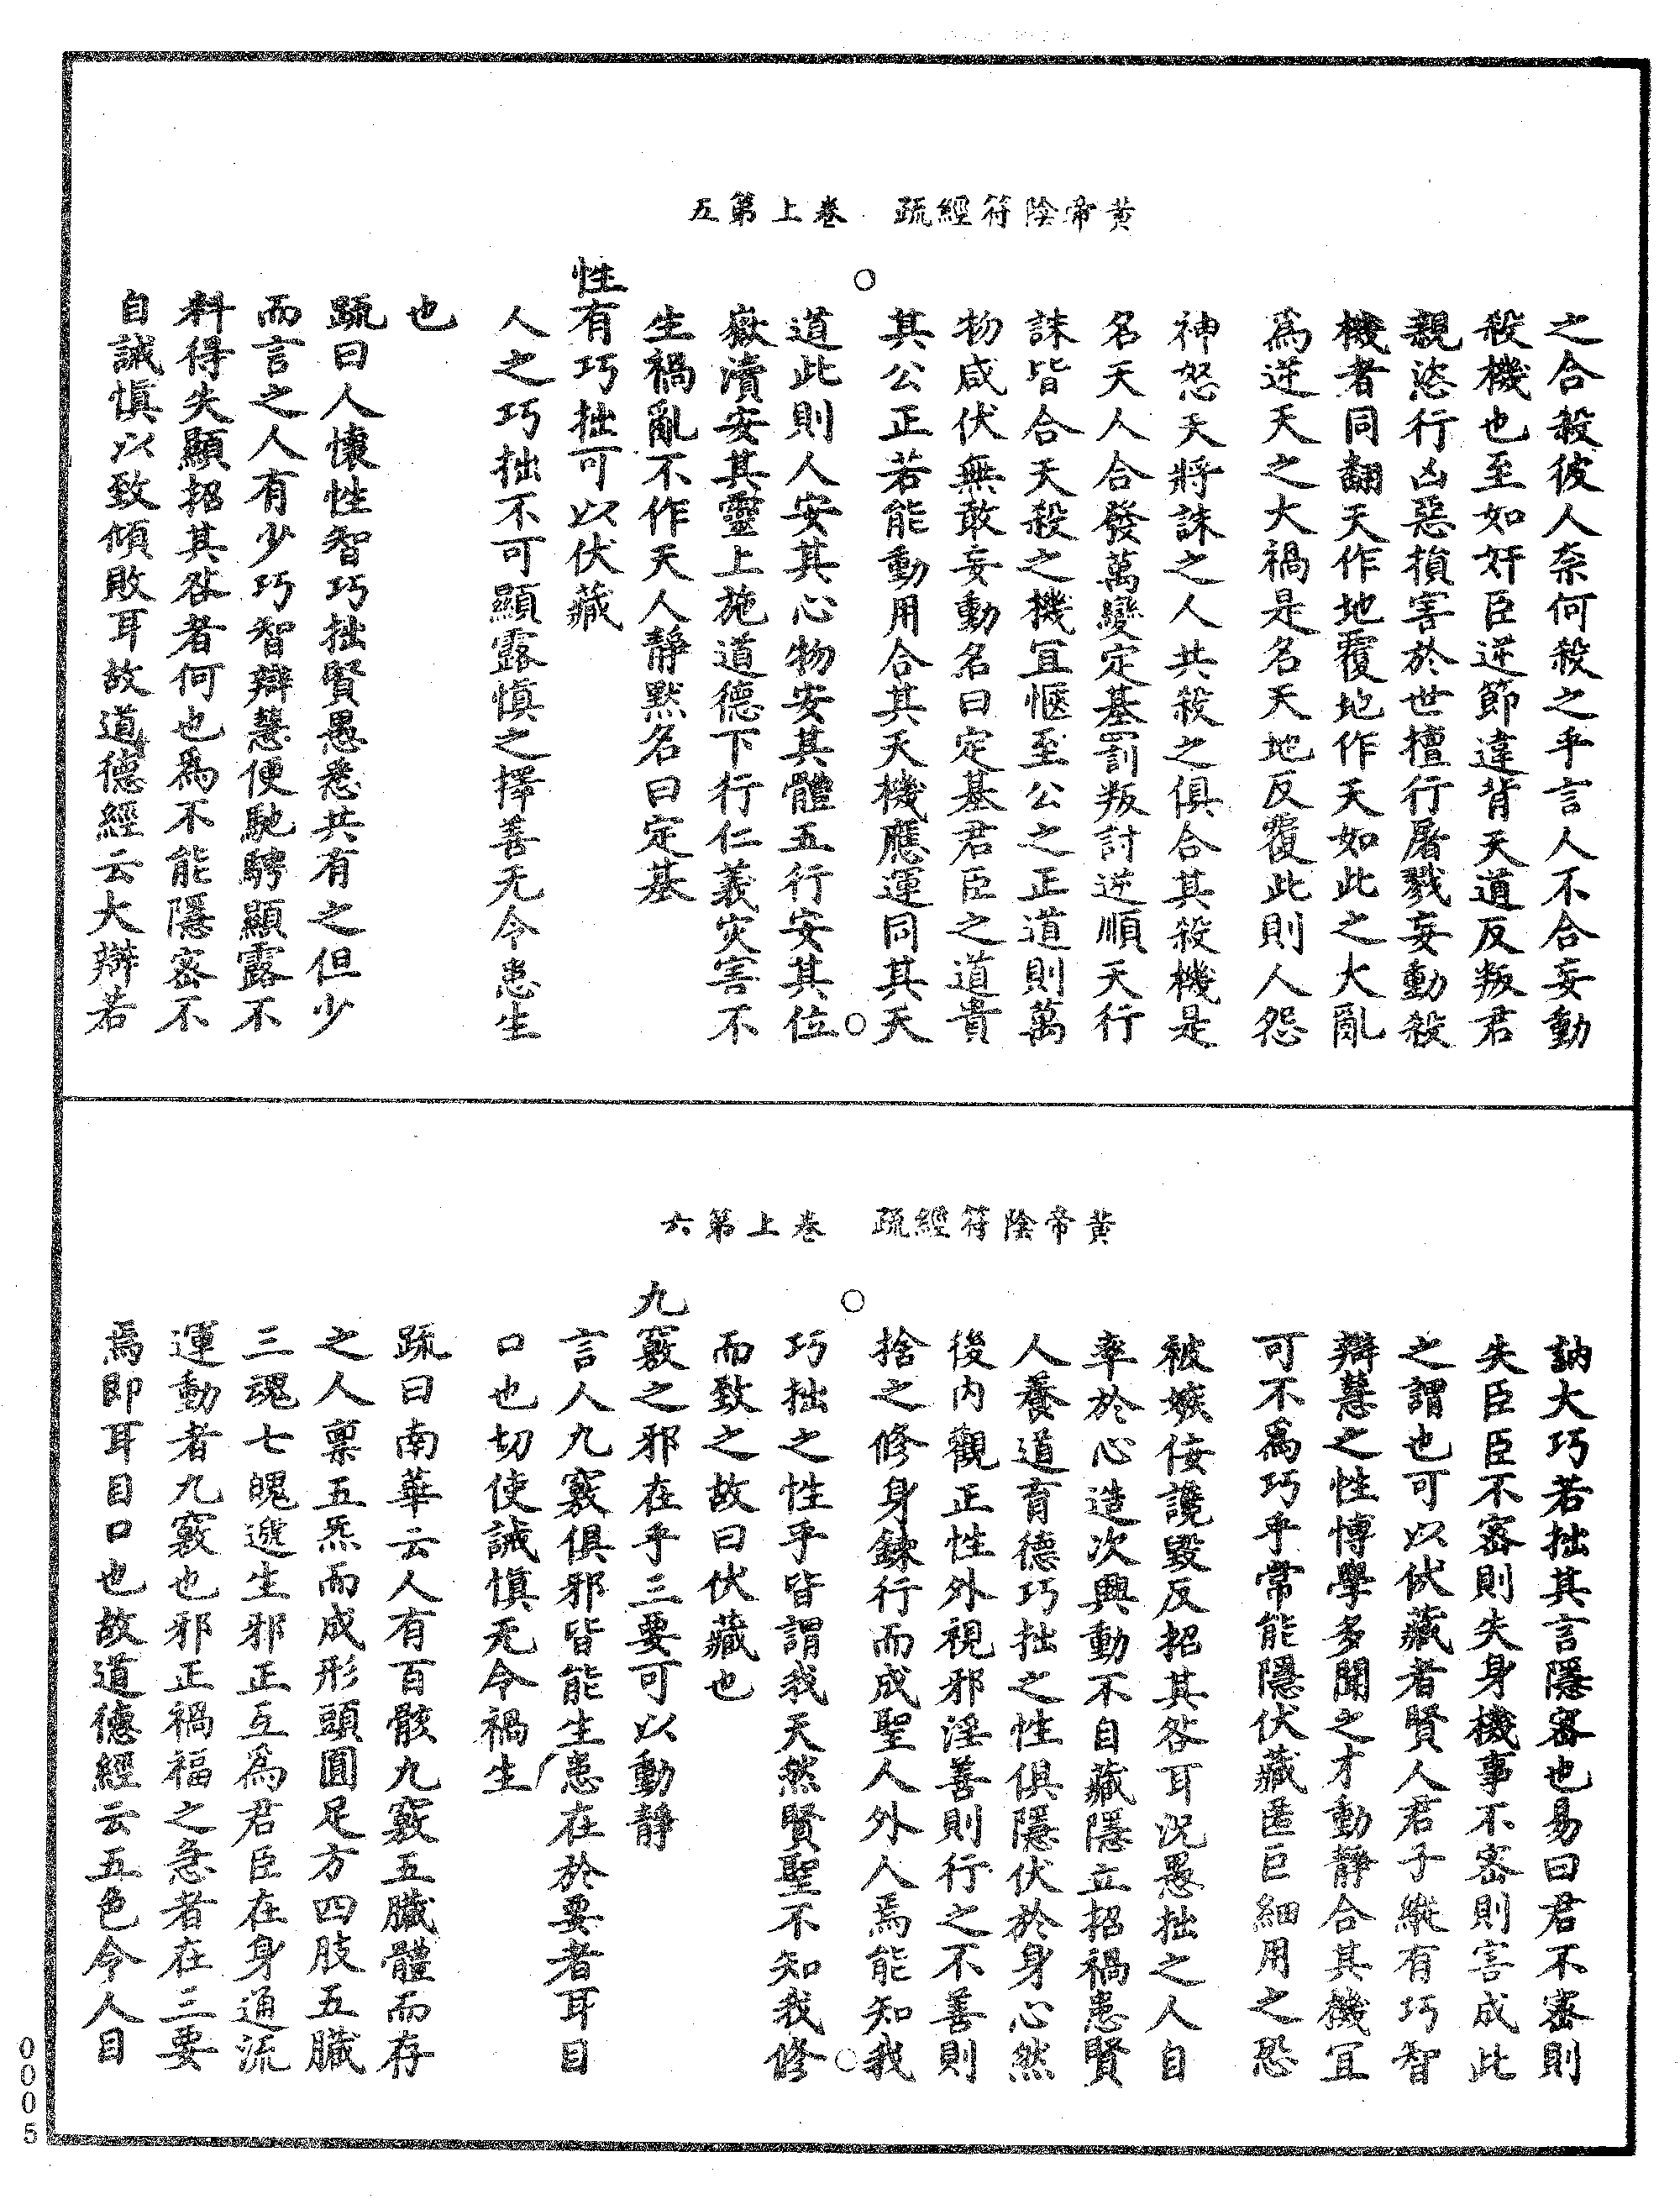 黃帝陰符經疏　卷上第五
之合殺彼人柰何殺之乎言人不合妄動
殺機也至如奸臣逆節違背天道反叛君
親恣行凶惡損害於世擅行屠戮妄動殺
機者同翻天作地覆地作天如此之大亂
爲逆天之大禍是名天地反覆此則人怨
神怒天將誅之人共殺之俱合其殺機是
名天人合發萬變定基罰叛討逆順天行
誅皆合天殺之機宜愜至公之正道則萬
物咸伏無敢妄動名曰定基君臣之道貴
其公正若能動用合其天機應運同其天
道此則人安其心物安其體五行安其位
嶽瀆安其靈上施道德下行仁義災害不
生禍亂不作天人靜默名曰定基
性有巧拙可以伏藏
人之巧拙不可顯露慎之擇善无令患生
也
疏曰人懷性智巧拙賢愚悉共有之但少
而言之人有少巧智辯慧便馳騁顯露不
料得失顯招其咎者何也爲不能隱密不
自誡慎以致傾敗耳故道德經云大辯若
黃帝陰符經疏　卷上第六
訥大巧若拙其言隱密也易曰君不密則
失臣臣不密則失身機事不密則害成此
之謂也可以伏藏者賢人君子縱有巧智
辯慧之性博學多聞之才動靜合其機宜
可不爲巧乎常能隱伏藏匿巨細用之恐
被嫉佞讒毀反招其咎耳況愚拙之人自
率於心造次興動不自藏隱立招禍患賢
人養道育德巧拙之性俱隱伏於身心然
後內觀正性外視邪淫善則行之不善則
捨之修身鍊行而成聖人外人焉能知我
巧拙之性乎皆謂我天然賢聖不知我修
而致之故曰伏藏也
九竅之邪在乎三要可以動靜
言人九竅俱邪皆能生患在於要者耳目
口也切使誡慎无令禍生
疏曰南華云人有百骸九竅五臟體而存
之人稟五炁而成形頭圓足方四肢五臟
三魂七魄遞生邪正互爲君臣在身通流
運動者九竅也邪正禍福之急者在三要
焉即耳目口也故道德經云五色令人目
0005